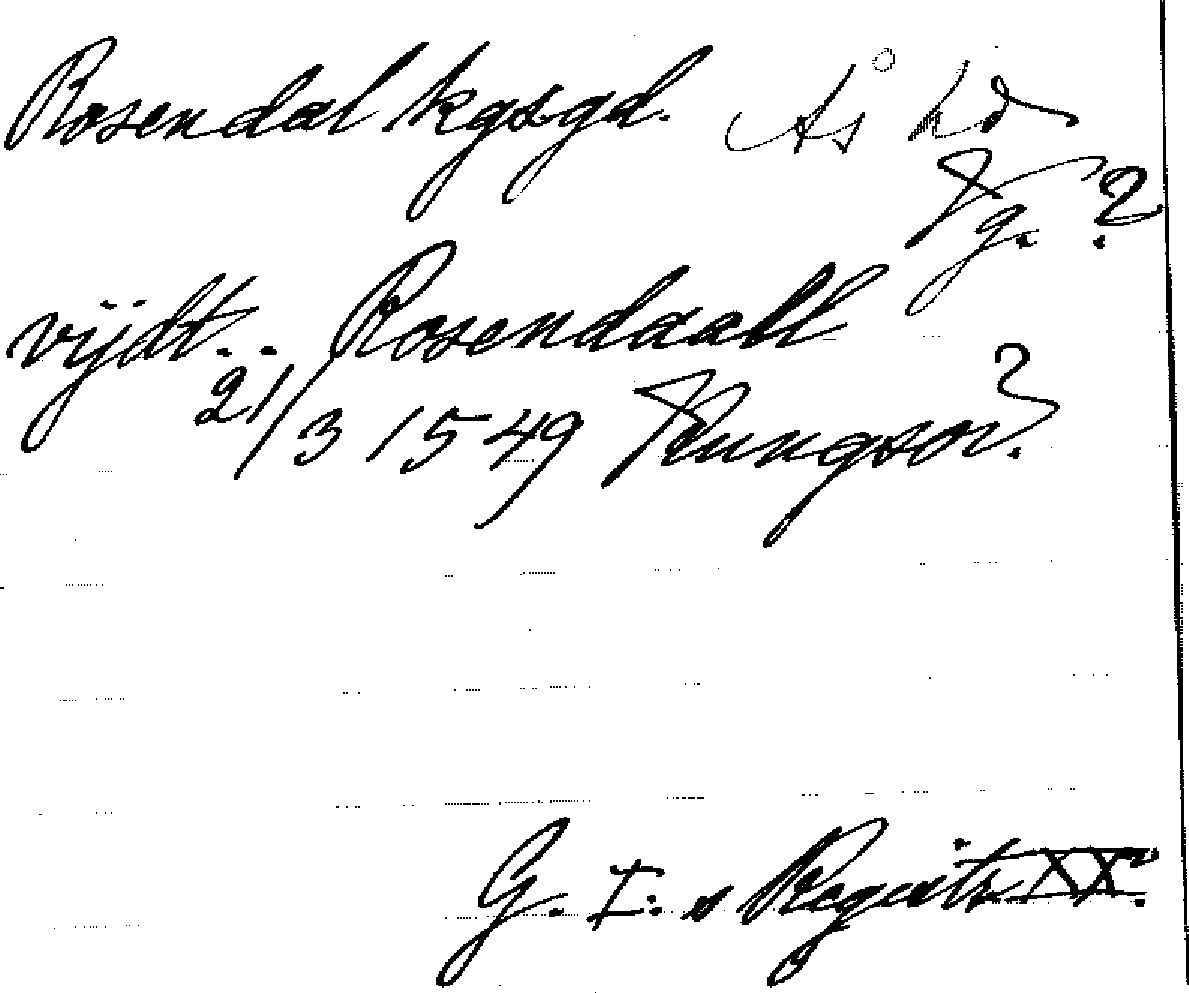 Rosendal kgsgd. Ås hd
Vg. ?
vijdt.. Rosendaall
21/3 1549 Kungsör. ?
G. I: s Registr. XX.